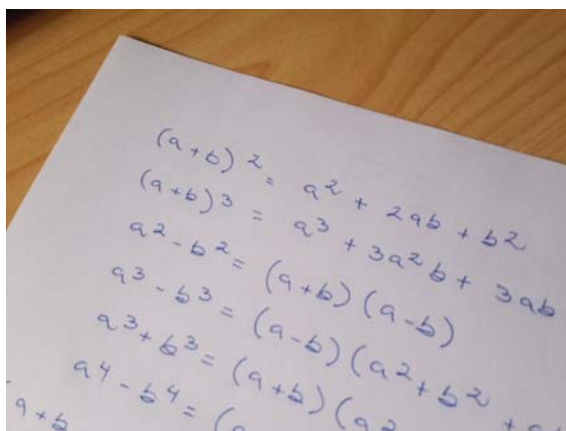 (a+b)² = a² + 2ab + b²
(a+b)³ = a³ + 3a²b + 3ab
a² - b² = (a+b)(a-b)
a³ - b³ = (a-b)(a² + b² +
a³ + b³ = (a+b)(a²
a⁴ - b⁴ = (
a+b